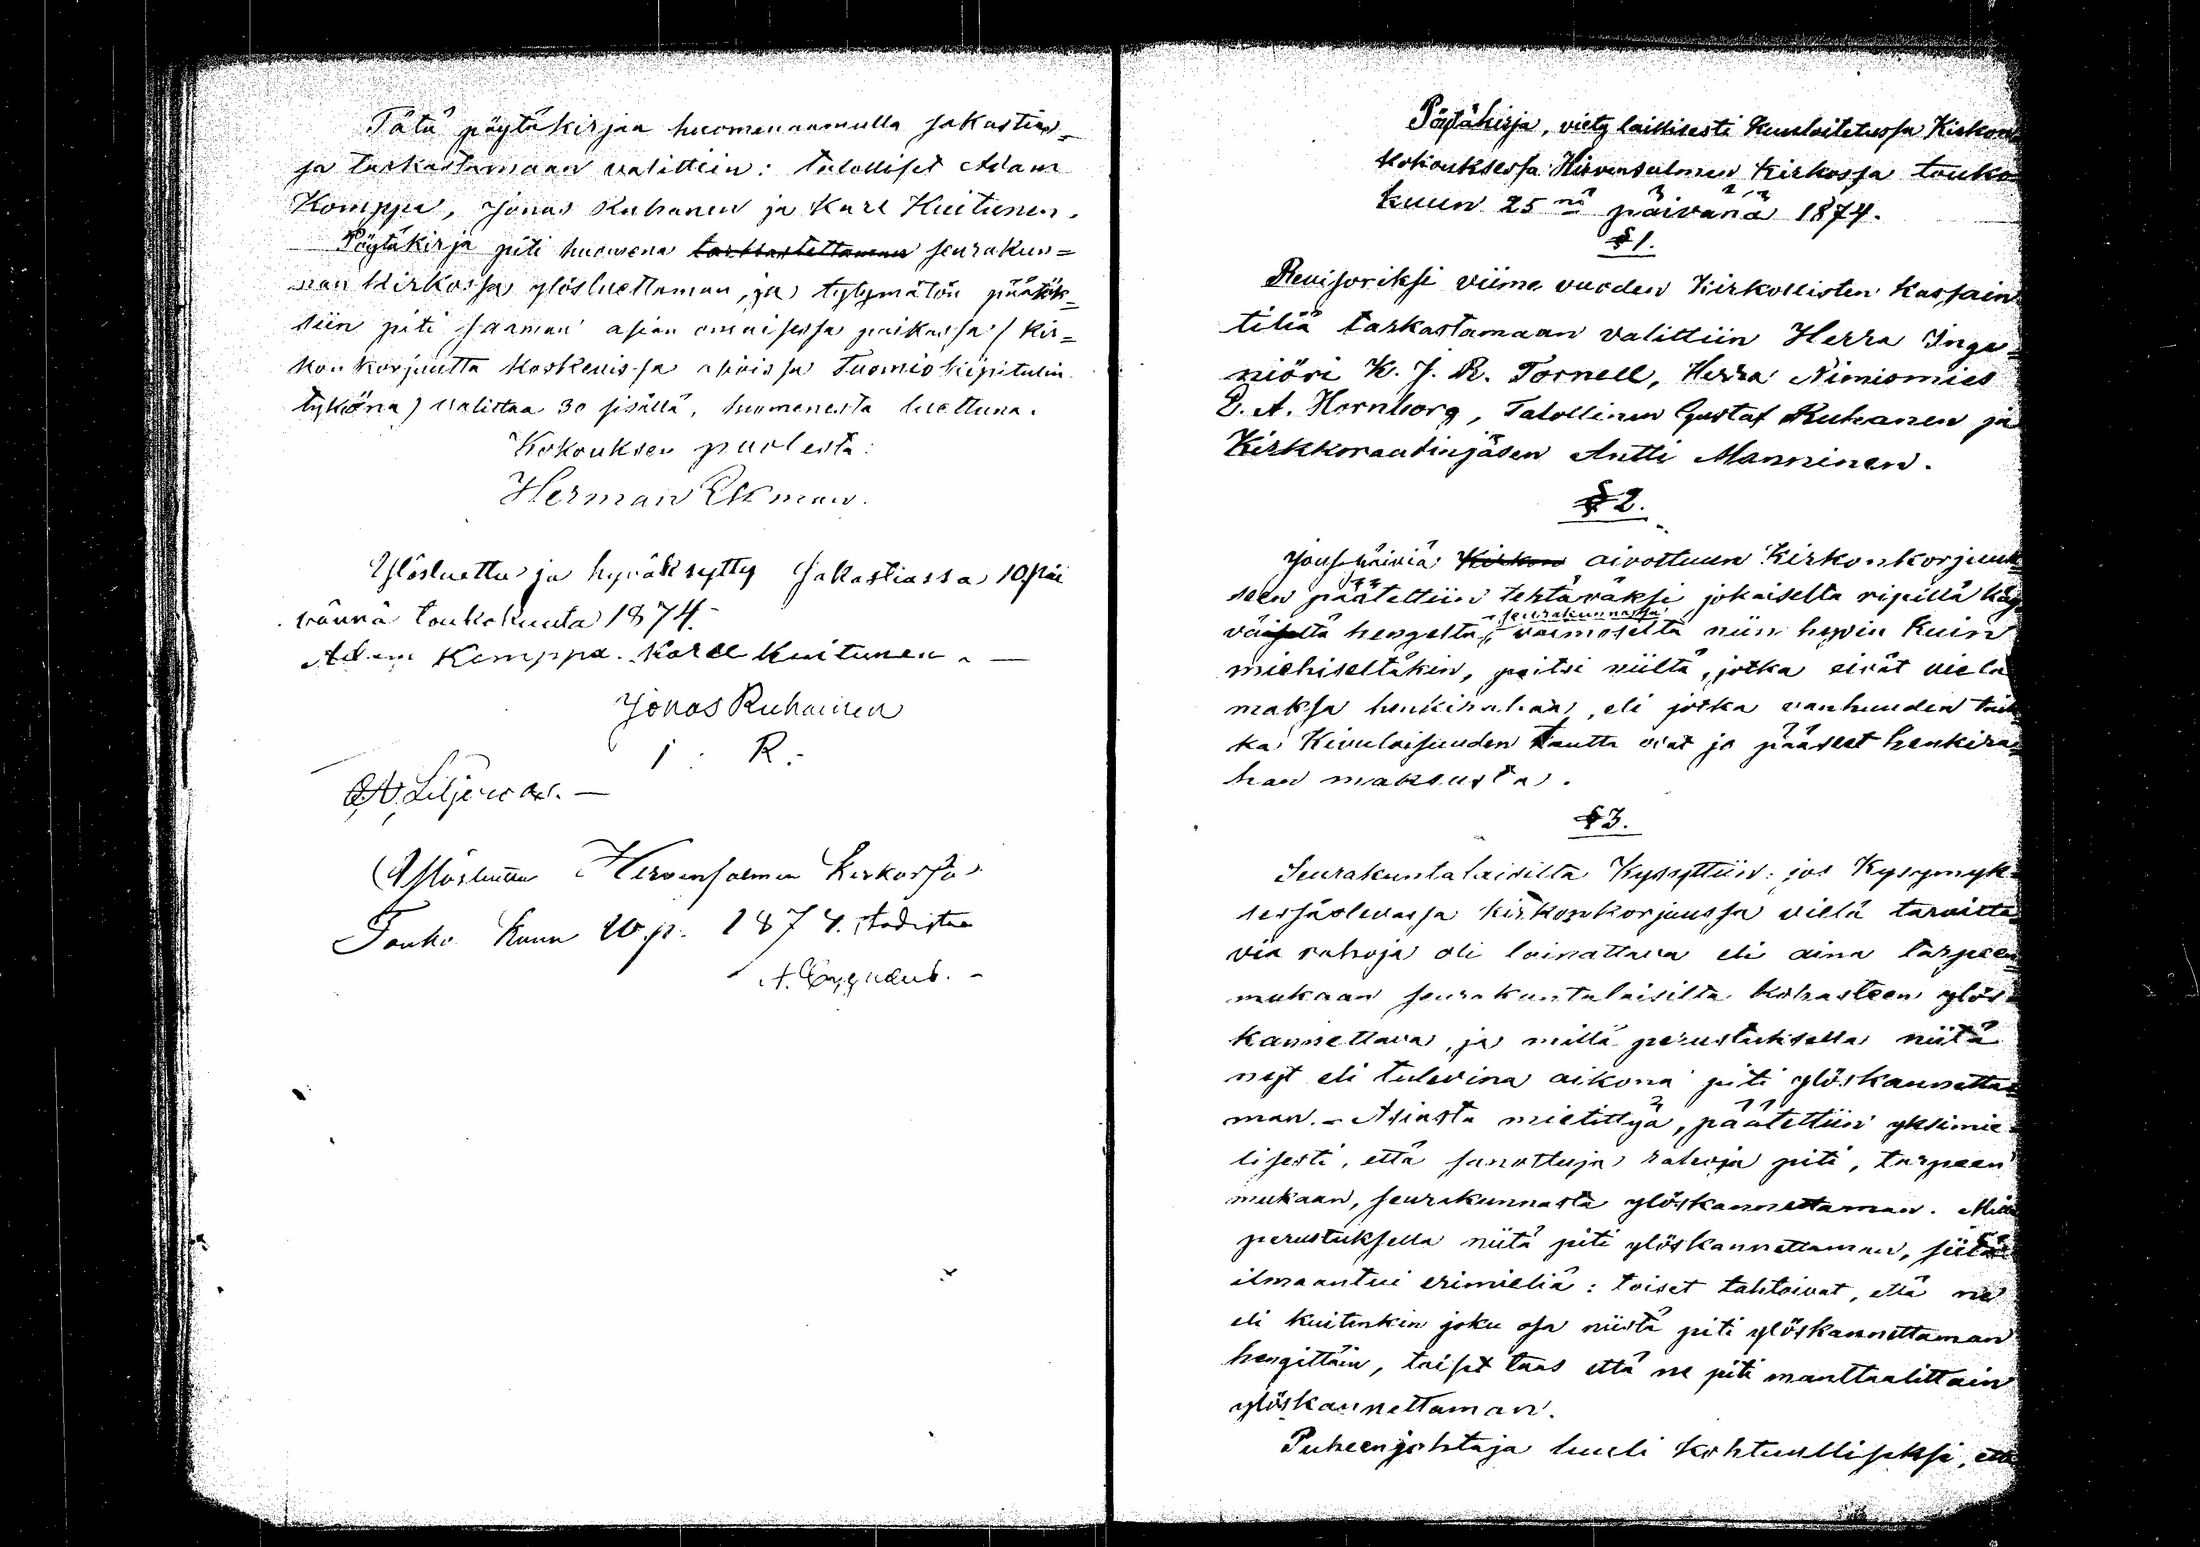 Tätä pöytäkirjaa huomenaamulla sakastias=
sa tarkastamaan valittiin: talolliset Adam
Komppa, Jonas Ruhanen ja Karl Huitunen.
Pöytäkirja piti huomena tarkastettaman seurakun=
nan kirkossa ylösluettaman, ja tytymätön päätök=
siin piti saaman asian omaisessa paikassa (kir=
kon korjuutta koskevissa asioissa Tuomiokapitulin
tykönä) valittaa 30 sisällä, huomenesta luettuna.
Kokouksen puolesta:
Herman Ekman.
Ylösluettu ja hyväksytty Sakastiassa 10 päi
vännä toukokuuta 1874.-
Adam Komppa. Karll Huitunen. —
Jonas Ruhainen
I: R:
Liljeroos. —
Ylösluettu Hirvensalmen kirkossa
Touko Kuun 10.p. 1874. todistaa
Pöytäkirja, viety laillisesti kuuloitetussa Kirkon
kokouksessa Hirvensalmen kirkossa touko
kuun 25 nä päivänä 1874.
§ 1.
Revisoriksi viime vuoden kirkollisten kassain
tiliä tarkastamaan valittiin Herra Inge=
niöri K. J. R. Tornell, Herra Nimismies
E. A. Hornborg, Talollinen Gustaf Ruhanen ja
Kirkkoraadinjäsen Antti Manninen.
§ 2.
Jousipäiviä Kirkon aivottuun Kirkonkorjuuk=
seen päätettiin tehtäväksi jokaiselta ripillä käy
seurakunnassa
väiseltä hengeltä, vaimoselta niin hyvin kuin
miehiseltäkin, paitsi niiltä, jotka eivät vielä
maksa henkirahaa, eli jotka vanhuuden taik
ka kivuloisuuden tautta ovat jo päässeet henkira=
han maksusta.
§ 3.
Seurakuntalaisilta kysyttiin: jos kysymyk=
sessäolevassa kirkonkorjuussa vielä tarvitta=
via rahoja oli lainattava eli aina tarpeen
mukaan seurakuntalaisilta kohasteen ylös=
kannettava, ja millä perustuksella niitä
nyt eli tulevina aikona piti ylöskannetta=
man. - Asiasta mietittyä, päätettiin yksimie=
lisesti, että sanottuja rahoja piti, tarpeen
mukaan, seurakunnasta ylöskannettaman. Millä
perustuksella niitä piti ylöskannettaman, siitä
ilmaantui erimieliä: toiset tahtoivat, että ne
eli kuitenkin joku osa niistä piti ylöskannettaman
hengittäin, toiset taas että ne piti manttaalittain
ylöskannettaman.
Puheenjohtaja luuli kohtuulliseksi, että